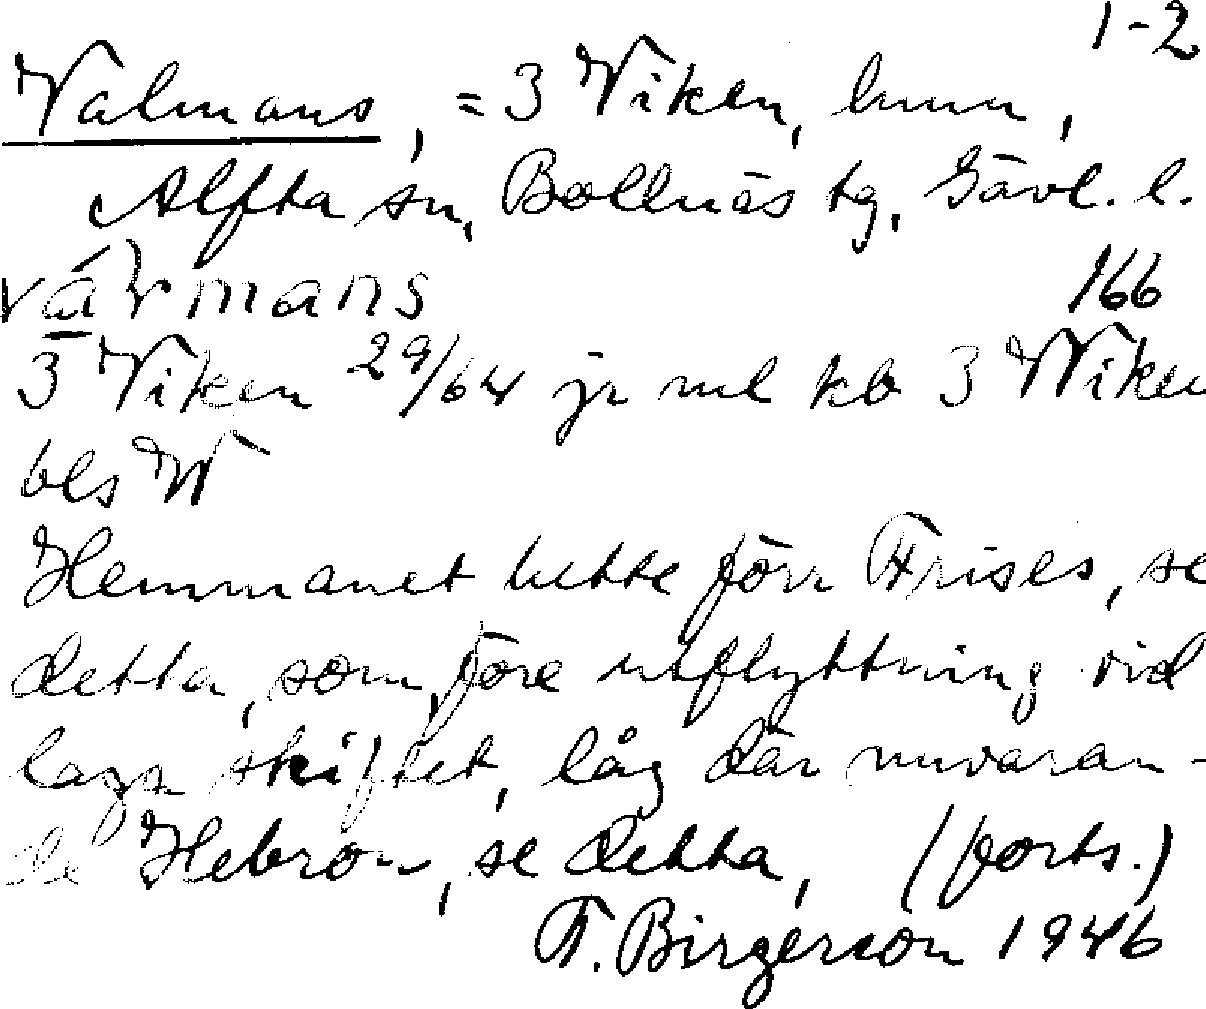 1-2
Valmans, = 3 Viken, hmn,
Alfta sn, Bollnäs tg, Gävl. l.
166
3 Viken 29/64 jr ml kb 3 Viken
bls W
Hemmanet hette förr Frises, se
detta, som, före utflyttning vid
laga skiftet, låg där nuvaran-
de Hebron, se detta, (forts.)
F. Birgerson 1946